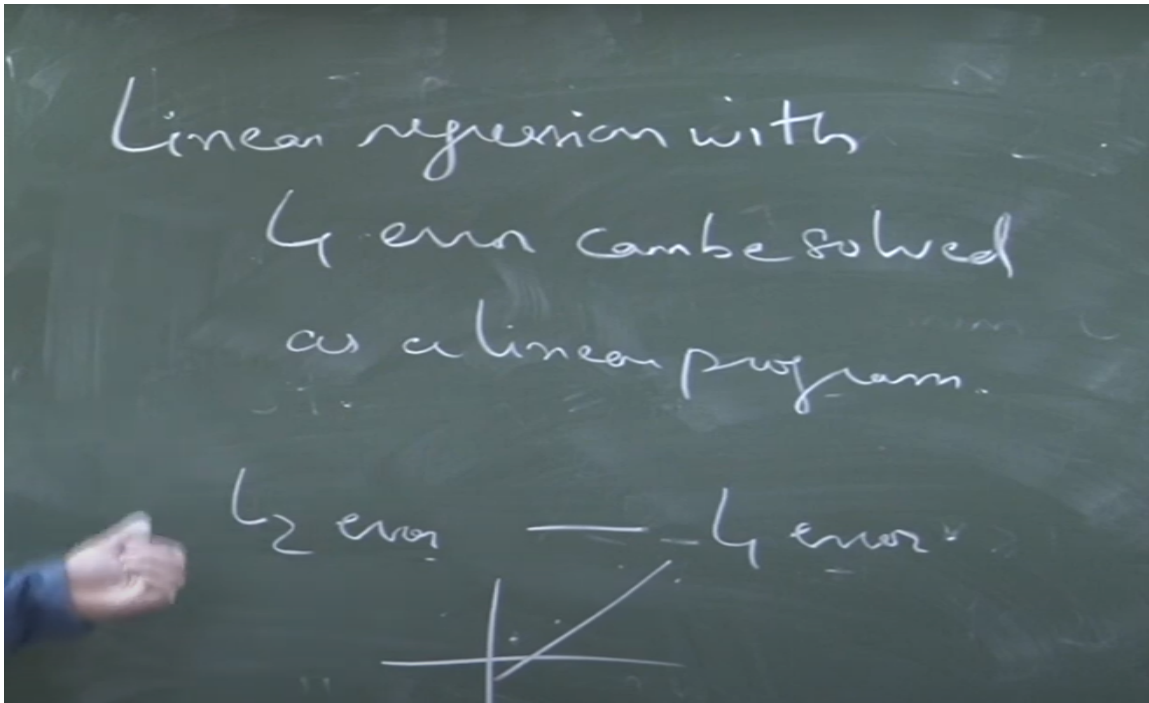 Linear regression with
L1 error can be solved
as a linear program.
L2 error — L1 error